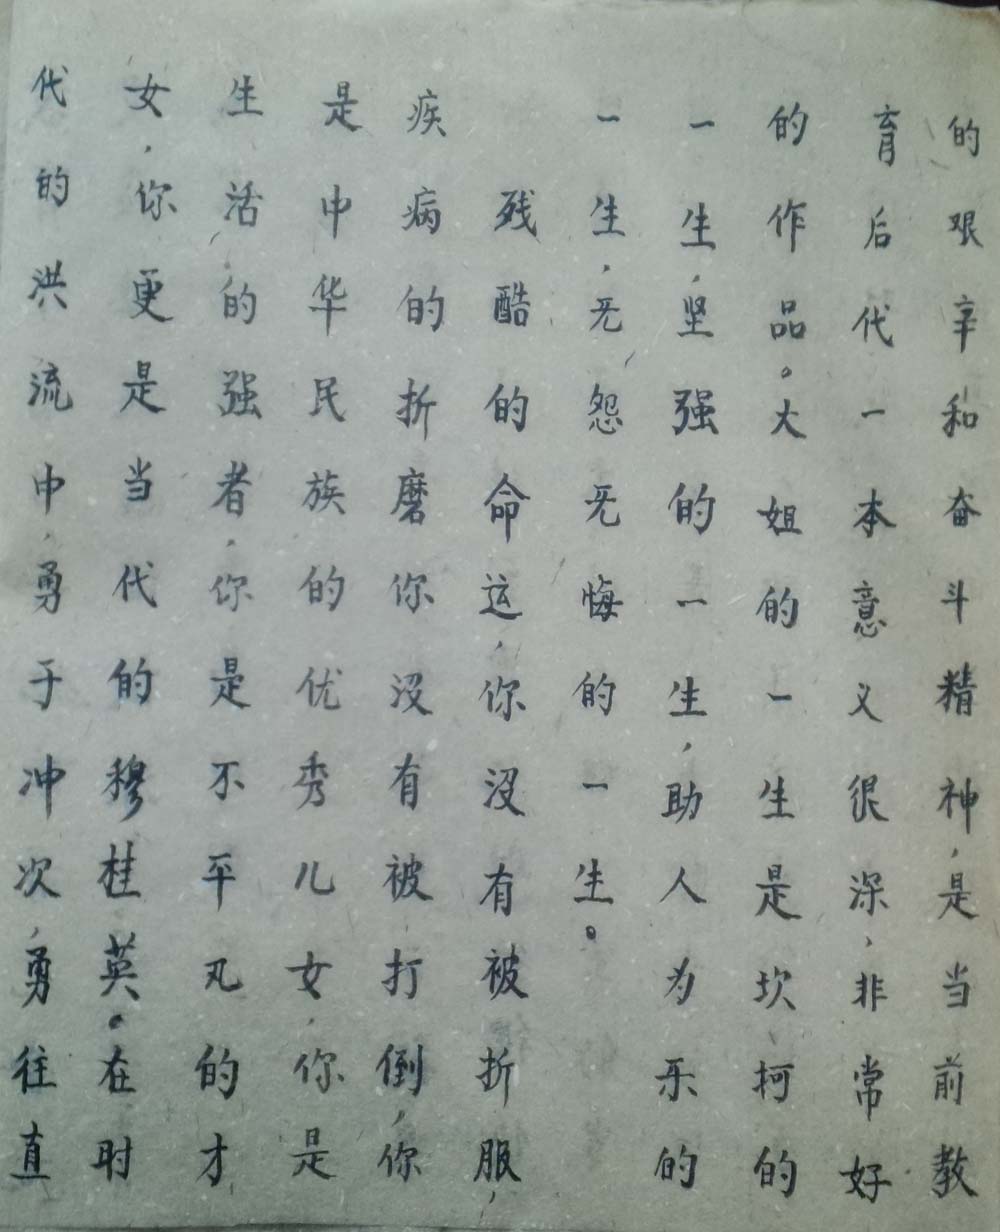 的艰辛和奋斗精神,是当前教
育后代一本意义很深,非常好
的作品。大姐的一生是坎坷的
一生,坚强的一生,助人为乐的
一生,无怨无悔的一生。
残酷的命运,你没有被折服,
疾病的折磨你没有被打倒,你
是中华民族的优秀儿女,你是
生活的强者,你是不平凡的才
女,你更是当代的穆桂英。在时
代的洪流中,勇于冲次,勇往直